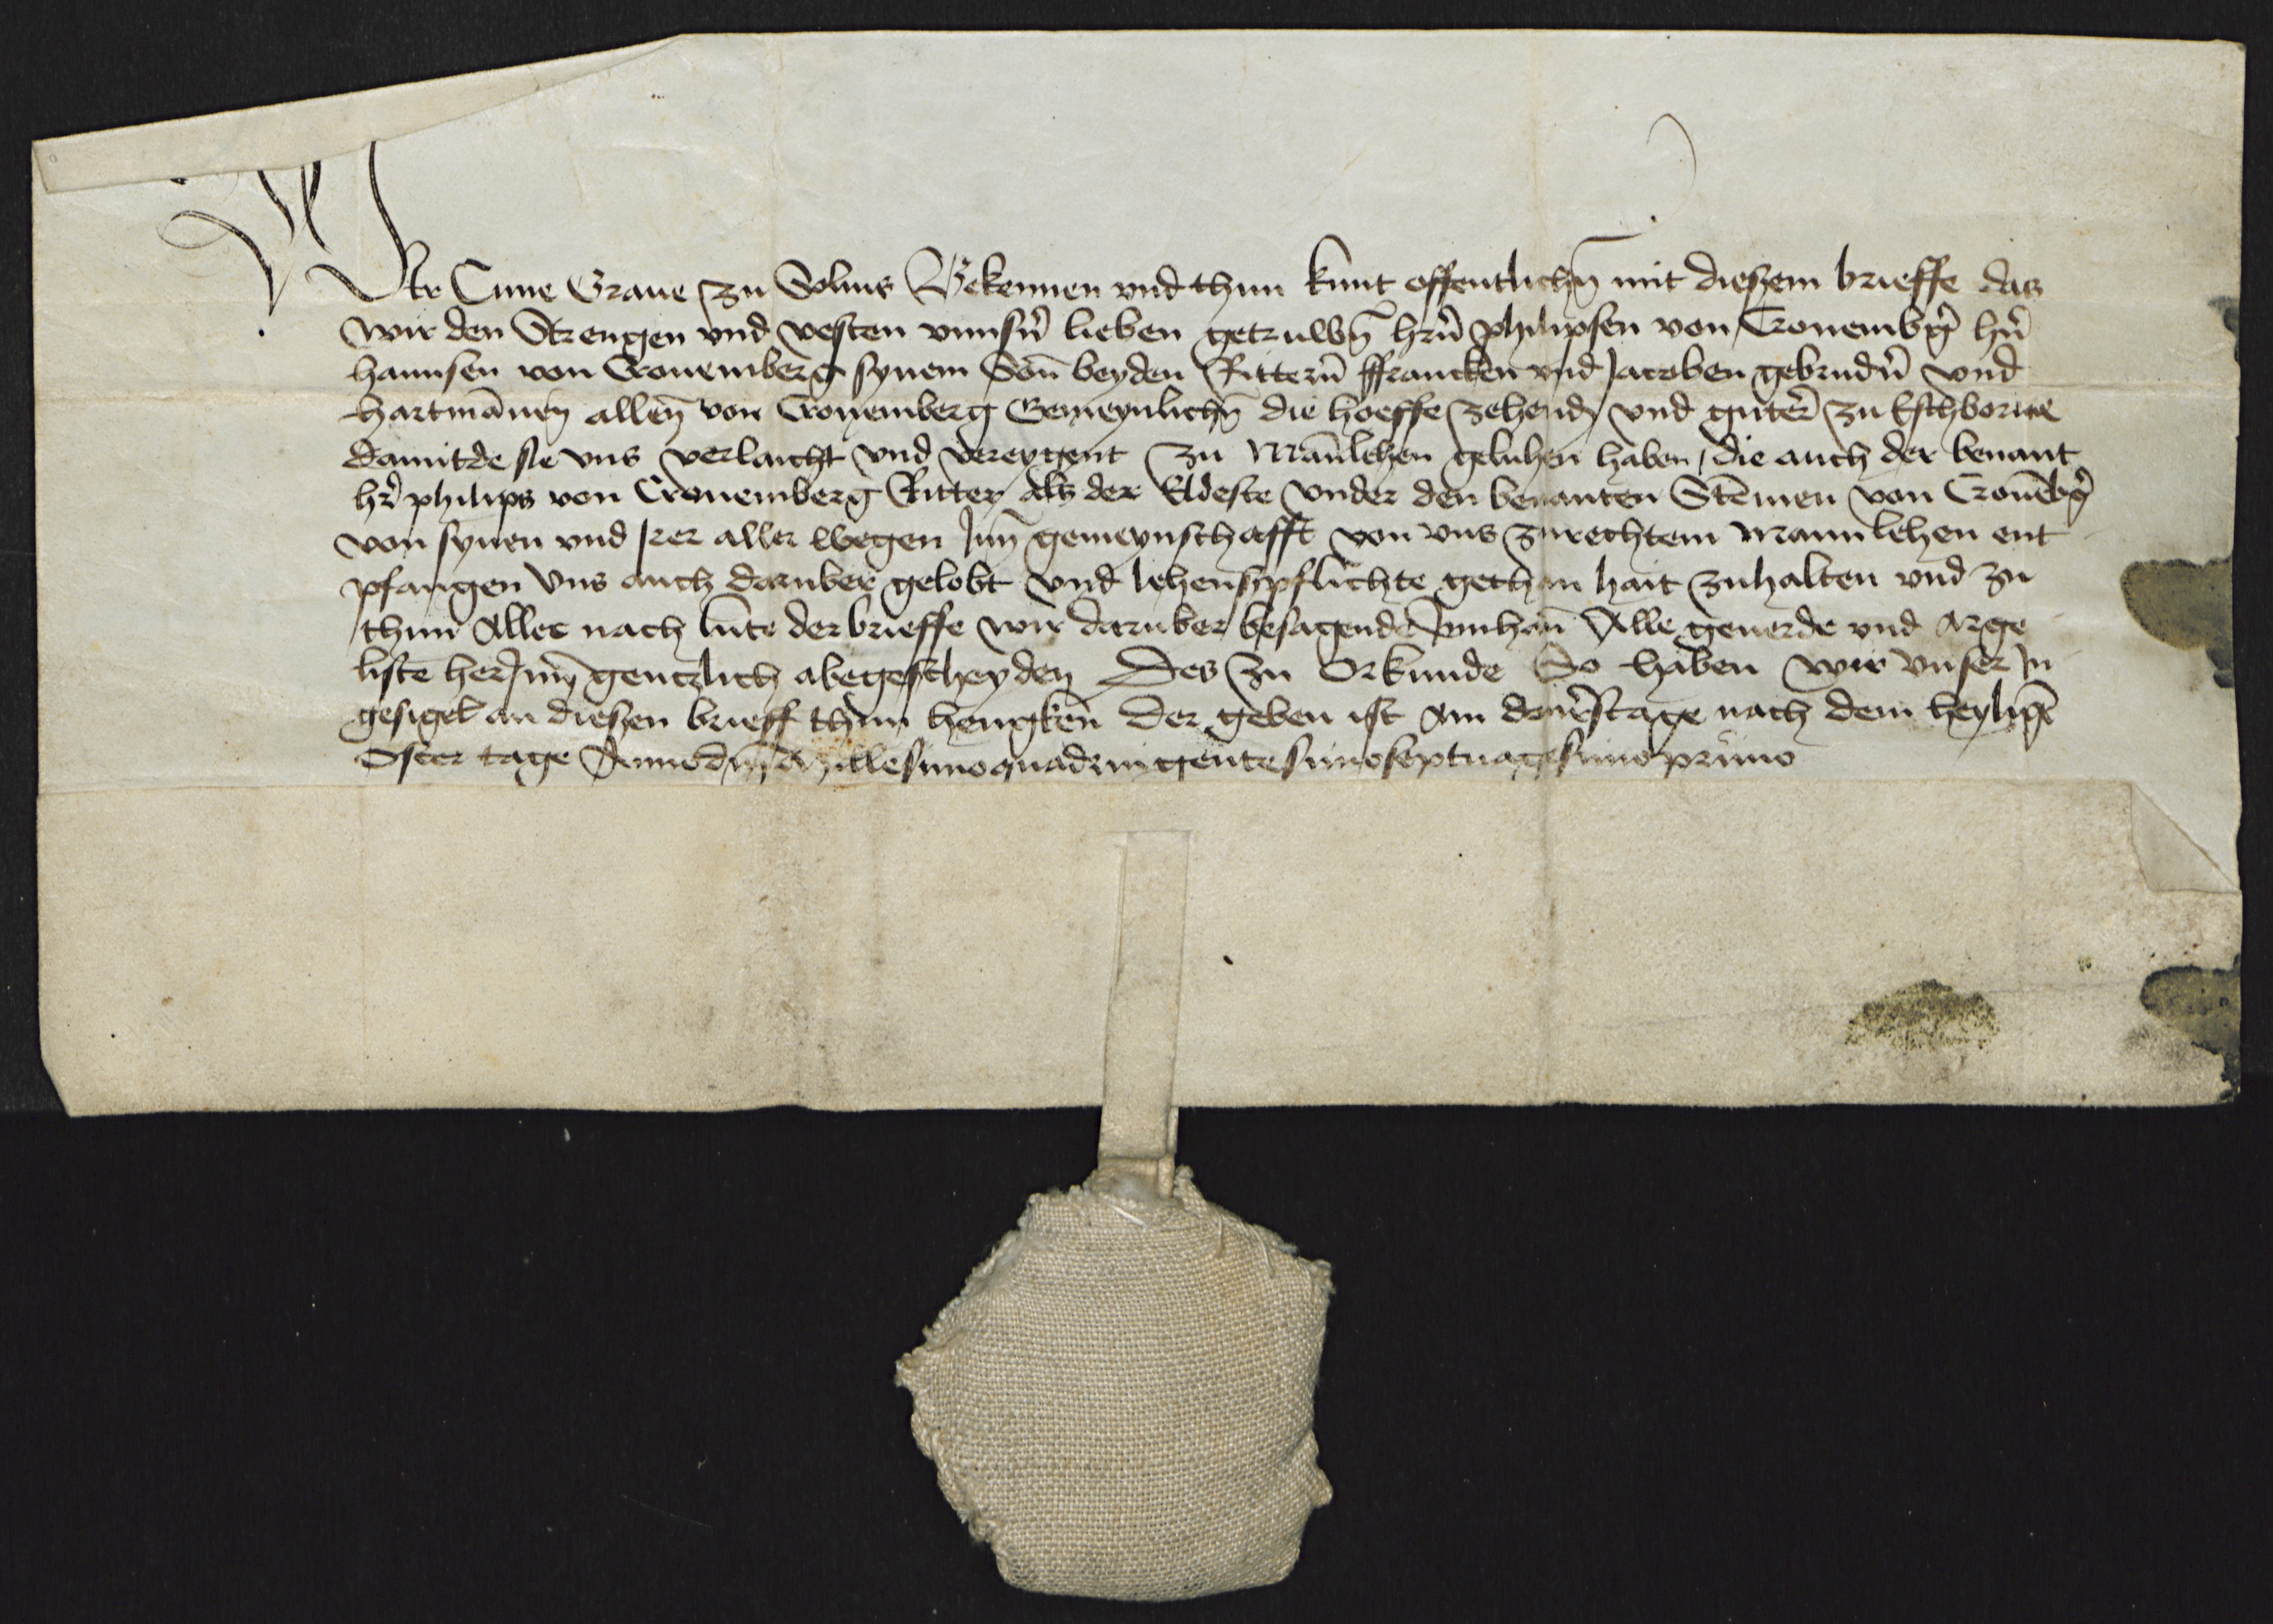 Wir Cune Graue zu Solms Bekennen vnd thun kunt offentlichn̄ mit dieszem brieffe das
wir den Strengen vnd vesten vnnsn̉ lieben getruwn̄ hrn̉ philipsen von Cronembg̉ hn̉
hannsen von Cronemberg synem Son̄ beyden Rittern̄ ffrancken vnd Jacoben gebrudn̉ vnd
hartmānen allen̄ von Cronemberg Gemeynlichn̄ die hoeffe zehend vnd guter̉ zu Eschborne
damitde sie vns verlaicht vnd vereygent zu Mān̄lehen geluhen haben, die auch der benant
hr̉ philips von Cronemberg Ritter als der Eldeste vnder den benanten Stēmen von Cronēbg̉
von synen vnd Irer aller wegen Inn̄ gemeynschafft von vns zurechtem Mannlehen ent
pfangen vns auch daruber gelobt vnd lehenspflichte gethan hait zuhalten vnd zu
thun Alles nach lute der brieffe wir daruber besagende Innhan̄ Alle geuerde vnd Arge
liste herJnn̄ gentzlich abegescheyden Des zu Orkunde So haben wir vnser In
gesigel an dieszen brieff thun hengken̄ Der geben ist Am donrѕtage nach dem heyliḡ
Oster tage Anno dn̄j Millesimo quadringentesimo septuagesimo primo